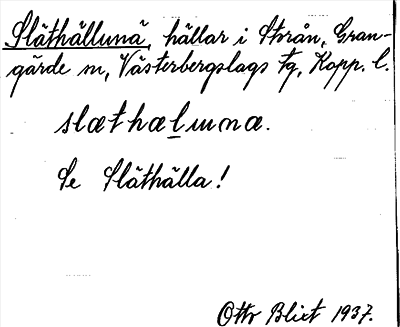 Släthällunä, hällar i Storån, Gran-
gärde sn, Västerbergslags tg, Kopp. l.
slæthæl̲unæ.
Se Släthälla!
Otto Blixt 1937.